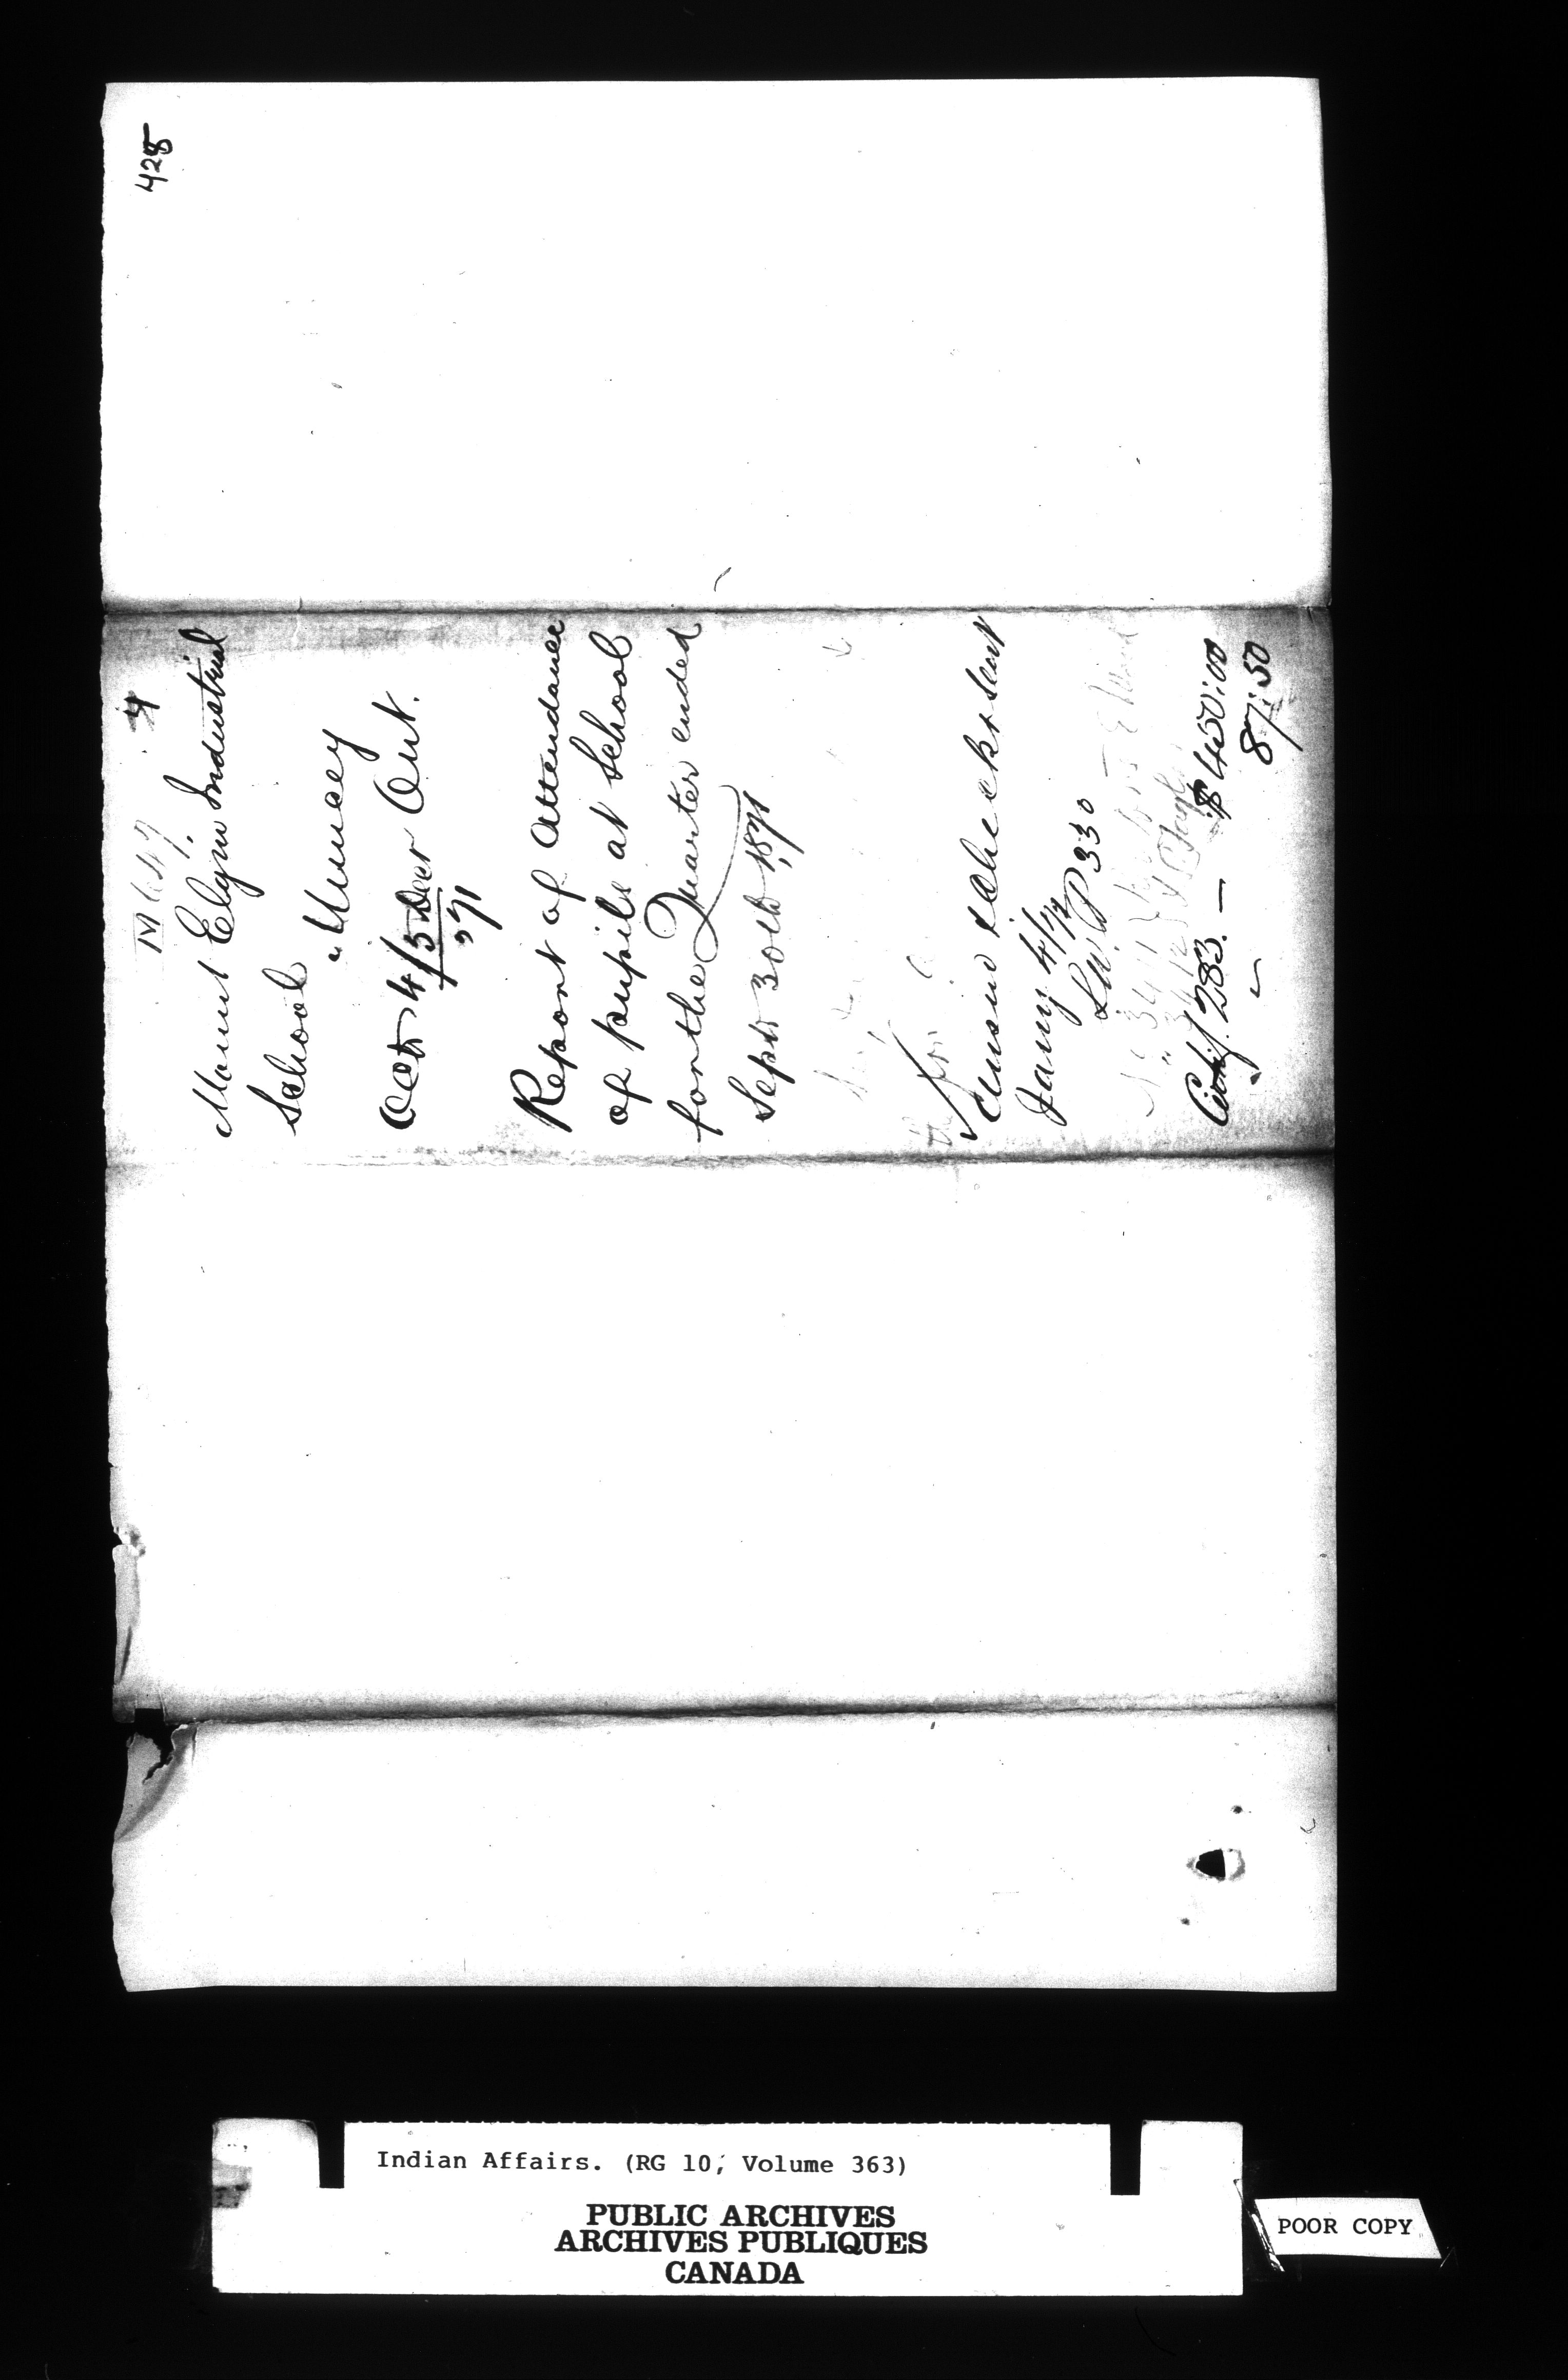 428
4
Mount Elgin Industrial
School
Muncey
Oct 4/5 Decr Ont.
'71
Report of Attendance
of pupils at School
for the Quarter ended
Sept 30th 1871
& checks sent
Jany 4/72
P 330
Certif. 283. — $ 450:00
87:50
Indian Affairs. (RG 10, Volume 363)
PUBLIC ARCHIVES
ARCHIVES PUBLIQUES
CANADA
POOR COPY